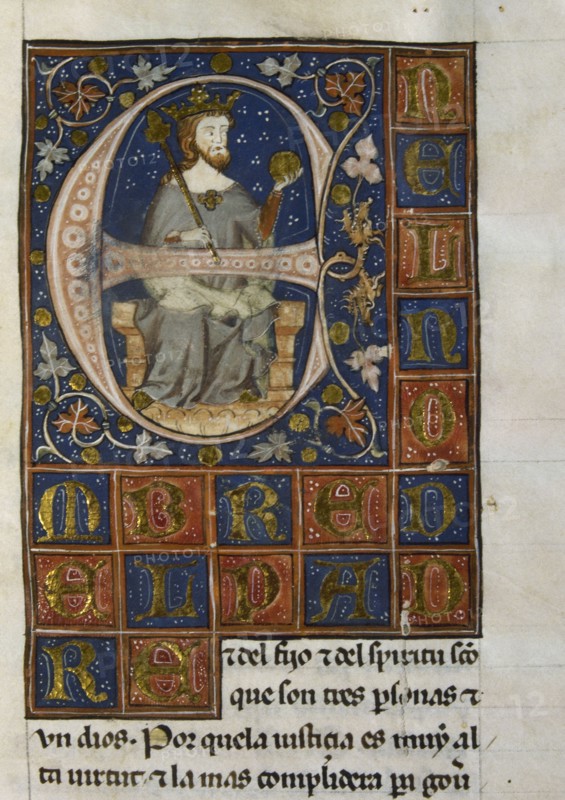 E
N
E
L
N
O
M B R E D
E L P A D
R E
⁊ del fijo ⁊ del spiritu sc̄o
que son tres ꝑsonas ⁊
vn dios. Por que la iusticia es muy al
ta uirtut ⁊ la mas complidera
PHOTO12